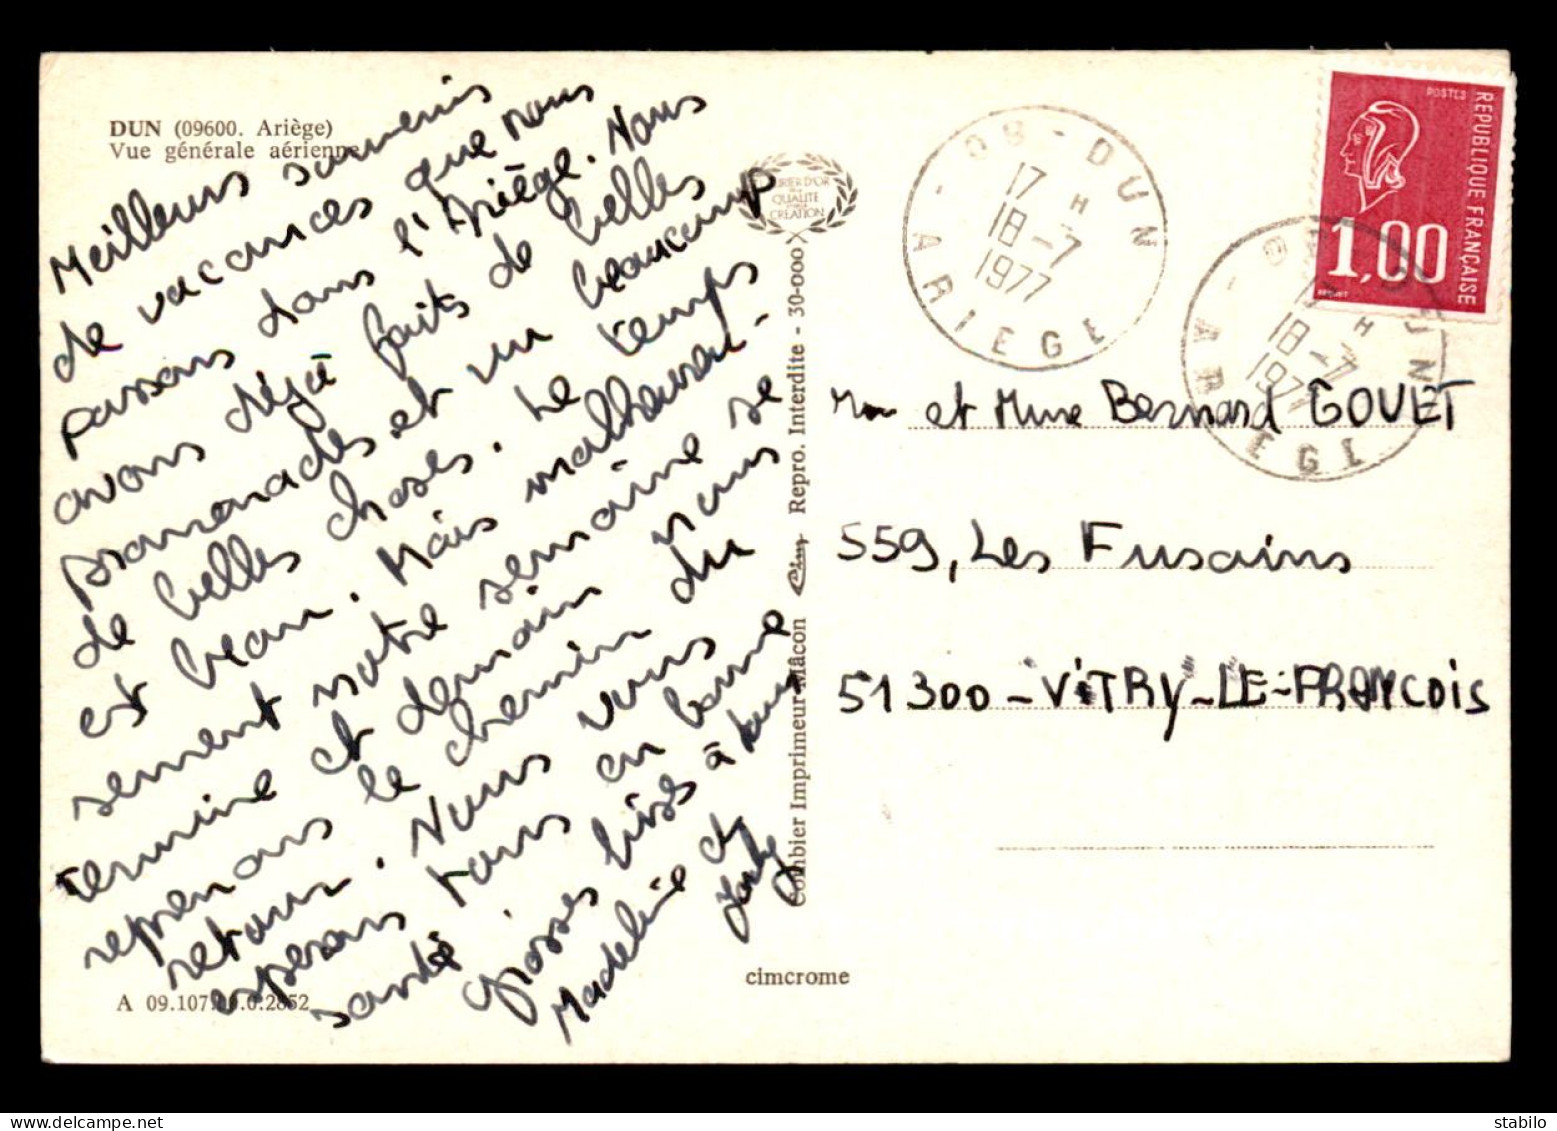 DUN (09600. Ariège)
Vue générale aérienne
Meilleurs souvenirs
de vacances que nous
passons dans l'Ariège. Nous
avons déjà faits de belles
promenades et vu beaucoup
de belles choses. Le temps
est beau. Mais malheureu-
sement notre semaine se
termine et demain nous
reprenons le chemin du
retour. Nous vous
espérons tous en bonne
santé.
grosses bises à tous
Madeleine et
COURRIER D'OR
QUALITÉ
CRÉATION
Combier Imprimeur Mâcon Cim Repro. Interdite - 30-000
cimcrome
A 09.107.00.0.2852
09 - DUN
17 H
18-7
1977
ARIEGE
POSTES
REPUBLIQUE FRANÇAISE
1,00
DUN
H
18-7
1977
ARIEGE
Mr et Mme Bernard GOUET
559, Les Fusains
51300 - VITRY-LE-FRANCOIS
stabilo